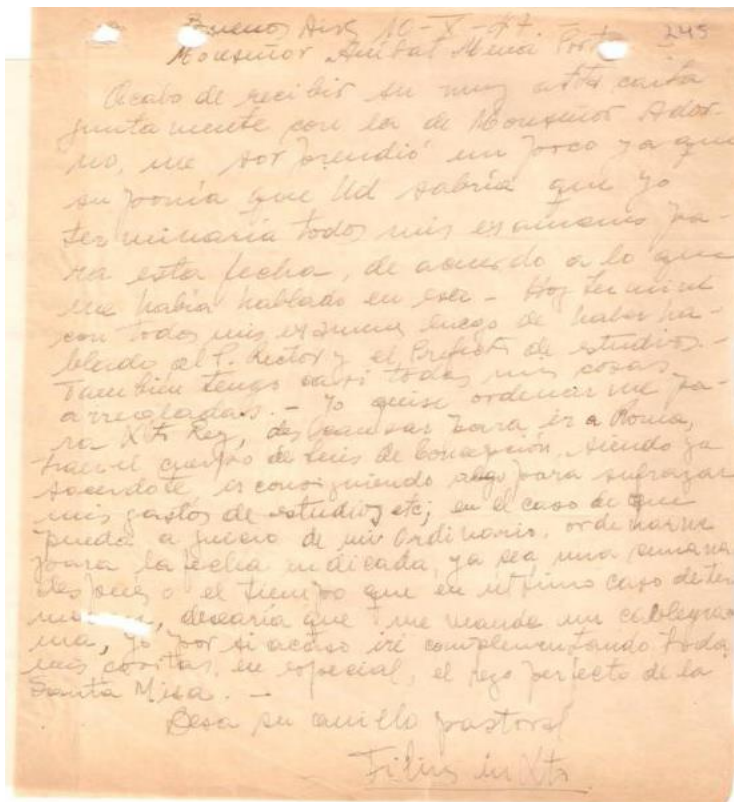 Buenos Aires 10-X-47.- 245
Monseñor Anibal Mena Porta
Acabo de recibir su muy atta carta
juntamente con la de Monseñor Ador-
no, me sorprendió un poco ya que
suponía que Ud sabría que yo
terminaría todos mis examenes pa-
ra esta fecha, de acuerdo a lo que
me había hablado en esa - Hoy terminé
con todos mis examenes luego de haber ha-
blado al P. Rector y el Prefecto de estudios.-
Tambien tengo casi todas mis cosas
arregladas.- Yo quise ordenarme pa-
ra Xto Rey, descansar para ir a Roma,
traer el cuerpo de Luis de Concepción, siendo ya
sacerdote ir consiguiendo algo para sufragar
mis gastos de estudios etc; en el caso de que
pueda a juicio de mi Ordinario, ordenarme
para la fecha indicada, ya sea una semana
después o el tiempo que en ultimo caso deter
, desearía que me mande un cablegra-
ma, yo por si acaso iré complementando todas
mis cositas, en especial, el rezo perfecto de la
Santa Misa. -
Besa su anillo pastoral
Filius in Xto